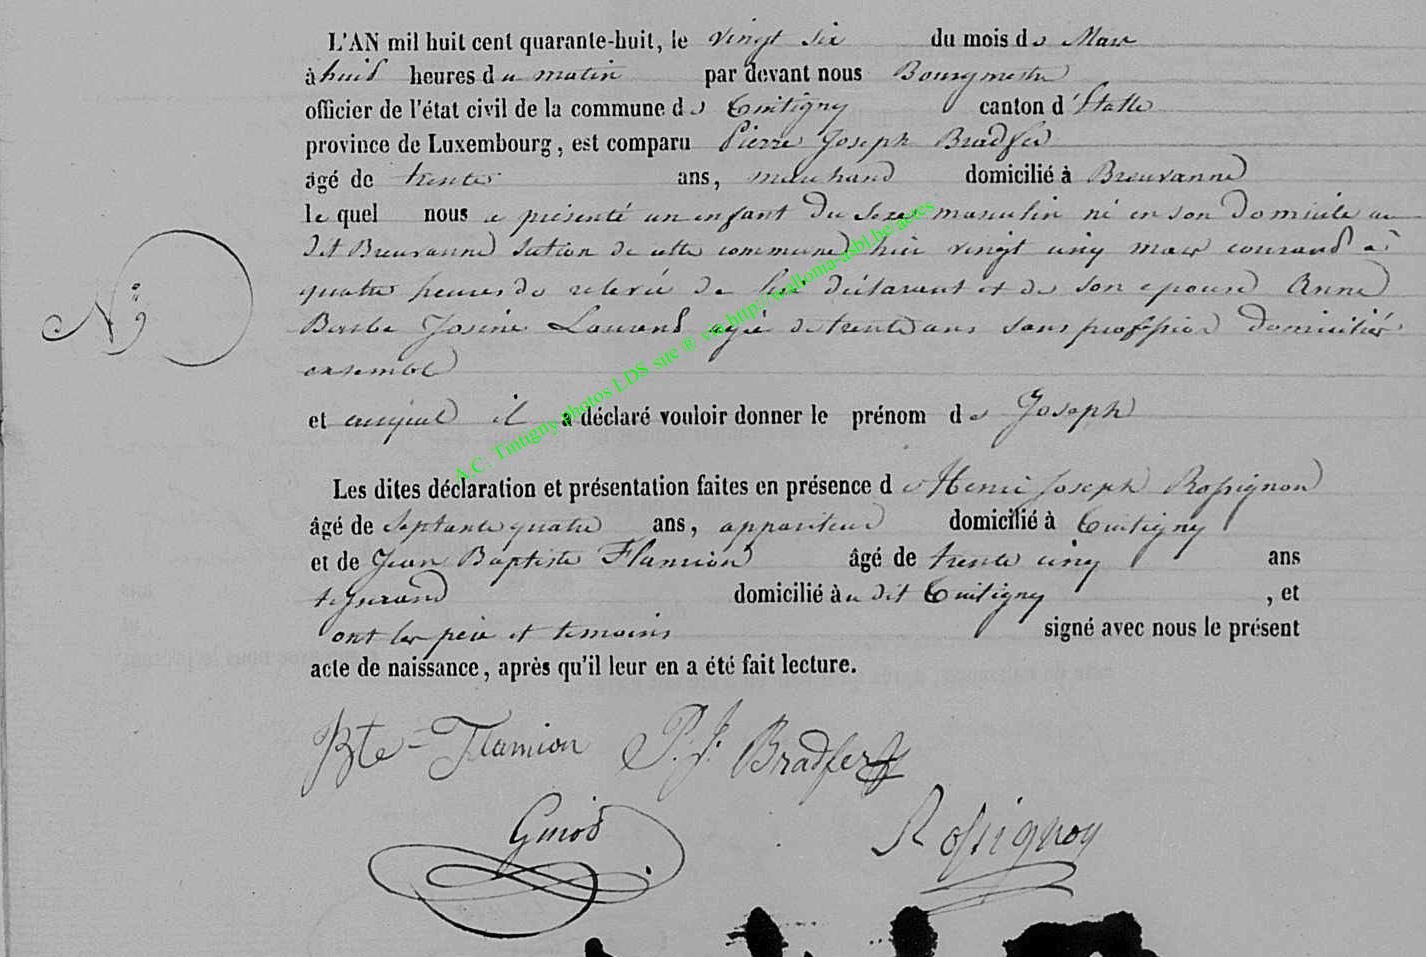 L'AN mil huit cent quarante-huit, le vingt six du mois de Mars
à huit heures du matin par devant nous Bourgmestre
officier de l'état civil de la commune de Tintigny canton d'Etalle
province de Luxembourg, est comparu Pierre Joseph Bradfer
âgé de trente ans, marchand domicilié à Breuvanne
le quel nous a présenté un enfant du sexe masculin né en son domicile au
dit Breuvanne section de cette commune hier vingt cinq mars courant à
quatre heures de relevée de lui déclarant et de son epouse Anne
Barbe Josine Laurent agée de trente ans sans profession domiciliés
ensemble
N° 9
et auquel il a déclaré vouloir donner le prénom de Joseph
Les dites déclaration et présentation faites en présence de Henri Joseph Rossignon
âgé de septante quatre ans, appariteur domicilié à Tintigny
et de Jean Baptiste Flamion âgé de trente cinq ans
tisserand domicilié au dit Tintigny, et
ont les père et temoins signé avec nous le présent
acte de naissance, après qu'il leur en a été fait lecture.
Bte-Flamion P. J. Bradfer
Rossignon
A.C. Tintigny photos LDS site ® via http://wallonia-asbl.be/actes